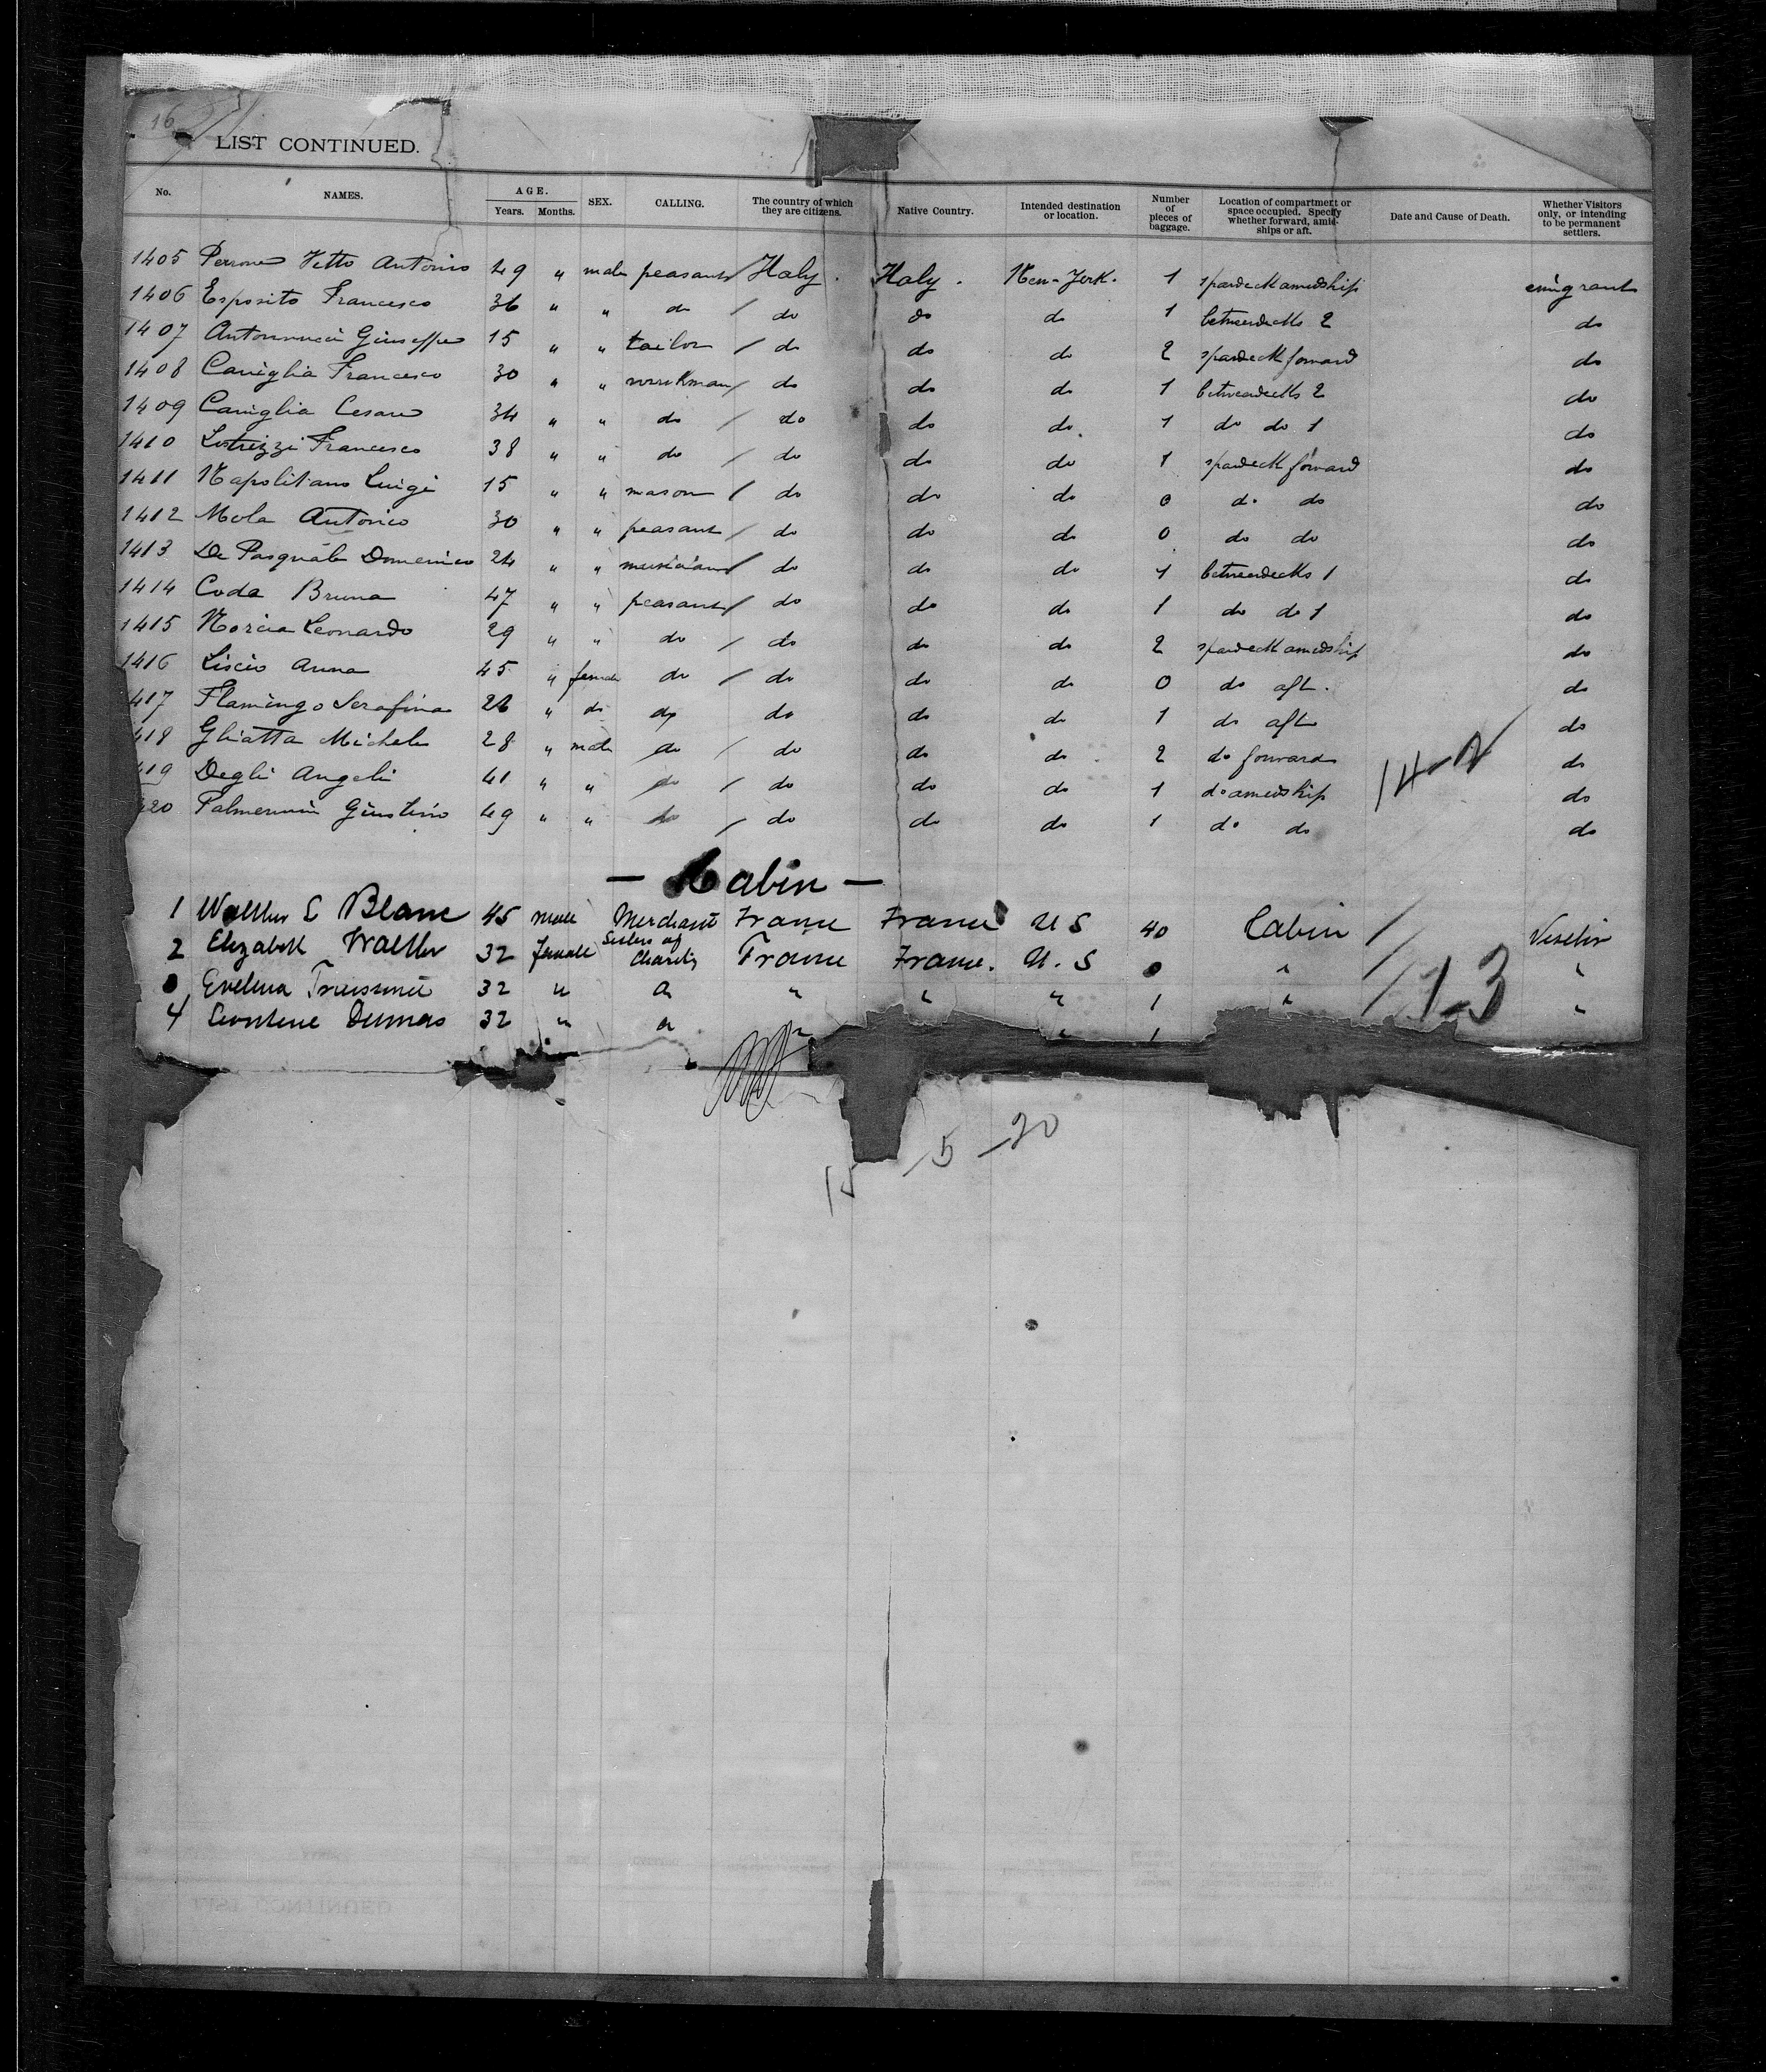 16
LIST CONTINUED.
No. NAMES. AGE. Years. Months. SEX. CALLING. The country of which they are citizens. Native Country. Intended destination or location. Number of pieces of baggage. Location of compartment or space occupied. Specify whether forward, amid-ships or aft. Date and Cause of Death. Whether Visitors only, or intending to be permanent settlers.
1405 Perrone Vitto Antonio 49 " male peasant / Italy. Italy. New-York. 1 spardeck amedship emigrant
1406 Esposito Francesco 36 " " do / do do do 1 betweendecks 2 do
1407 Antonnucci Giuseppe 15 " " tailor / do do do 2 spardeck forward do
1408 Caniglia Francesco 30 " " workman / do do do 1 betweendecks 2 do
1409 Caniglia Cesare 34 " " do / do do do. 1 do do 1 do
1410 Francesco 38 " " do / do do do 1 spardeck forward do
1411 Napolitano Luigi 15 " " mason / do do do 0 do do do
1412 Mola Antonio 30 " " peasant / do do do 0 do do do
1413 De Pasquale Domenico 24 " " musician / do do do 1 betweendecks 1 do
1414 Coda Bruna 47 " " peasant / do do do 1 do do 1 do
1415 Norcia Leonardo 29 " " do / do do do 2 spardeck amedship do
1416 Liscio Anna 45 " female do / do do do 0 do aft. do
417 Flamingo Serafina 26 " do do do do do 1 do aft do
418 Gliatta Michele 28 " male do / do do do 2 do forward do
419 Degli Angeli 41 " " do / do do do 1 do amedship do
420 Palmerini Giustino 49 " " do / do do do 1 do do do
14-2
- Cabin -
1 Walther L Blanc 45 male Merchant France France U S 40 Cabin / Visitor
2 Elizabeth Walther 32 female Sisters of Charity France France. U. S 0 " / "
Evelina 32 " " " " " 1 " / "
4 Leontine Dumas 32 " " " " 1
1-3
15 -5-20